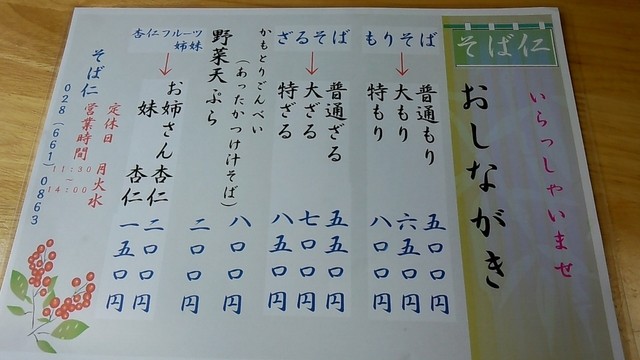 そば仁
いらっしゃいませ
おしながき
もりそば
普通もり 五〇〇円
大もり 六五〇円
特もり 八〇〇円
ざるそば
普通ざる 五五〇円
大ざる 七〇〇円
特ざる 八五〇円
かもとりごんべい
(あったかつけ汁そば) 八〇〇円
野菜天ぷら 二〇〇円
杏仁フルーツ
姉妹
お姉さん 杏仁 二〇〇円
妹 杏仁 一五〇円
定休日 月火水
営業時間 11:30
~14:00
そば仁
028(661)0863